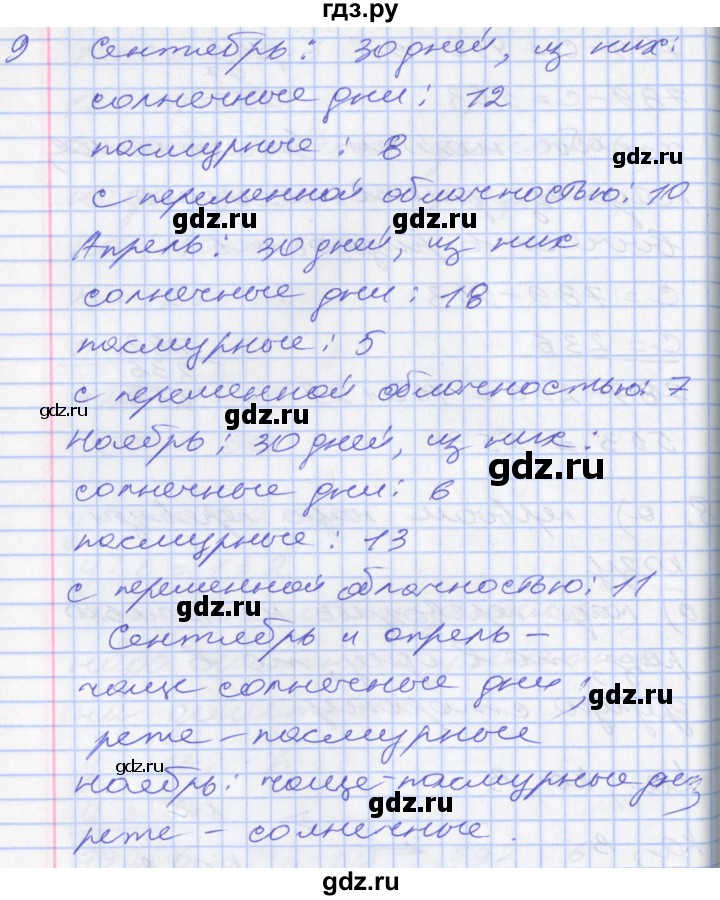 гдз.ру
9 Сентябрь: 30 дней, из них:
солнечные дни: 12
пасмурные: 8
с переменной облачностью: 10
Апрель: 30 дней, из них
солнечные дни: 18
пасмурные: 5
с переменной облачностью: 7
Ноябрь: 30 дней, из них:
солнечные дни: 6
пасмурные: 13
с переменной облачностью: 11
Сентябрь и апрель –
чаще солнечные дни;
реже – пасмурные
ноябрь: чаще – пасмурные дни;
реже – солнечные.
gdz.ru
gdz.ru
gdz.ru
gdz.ru
gdz.ru
gdz.ru
gdz.ru
gdz.ru
gdz.ru
gdz.ru
gdz.ru
gdz.ru